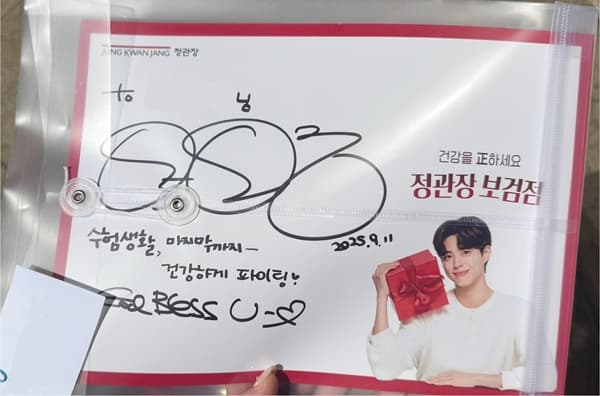 JUNG KWAN JANG 정관장
to 님
건강을 正하세요
정관장 보검점
수험생활, 마지막까지
건강하게 파이팅
2025.9.11
God BLESS U